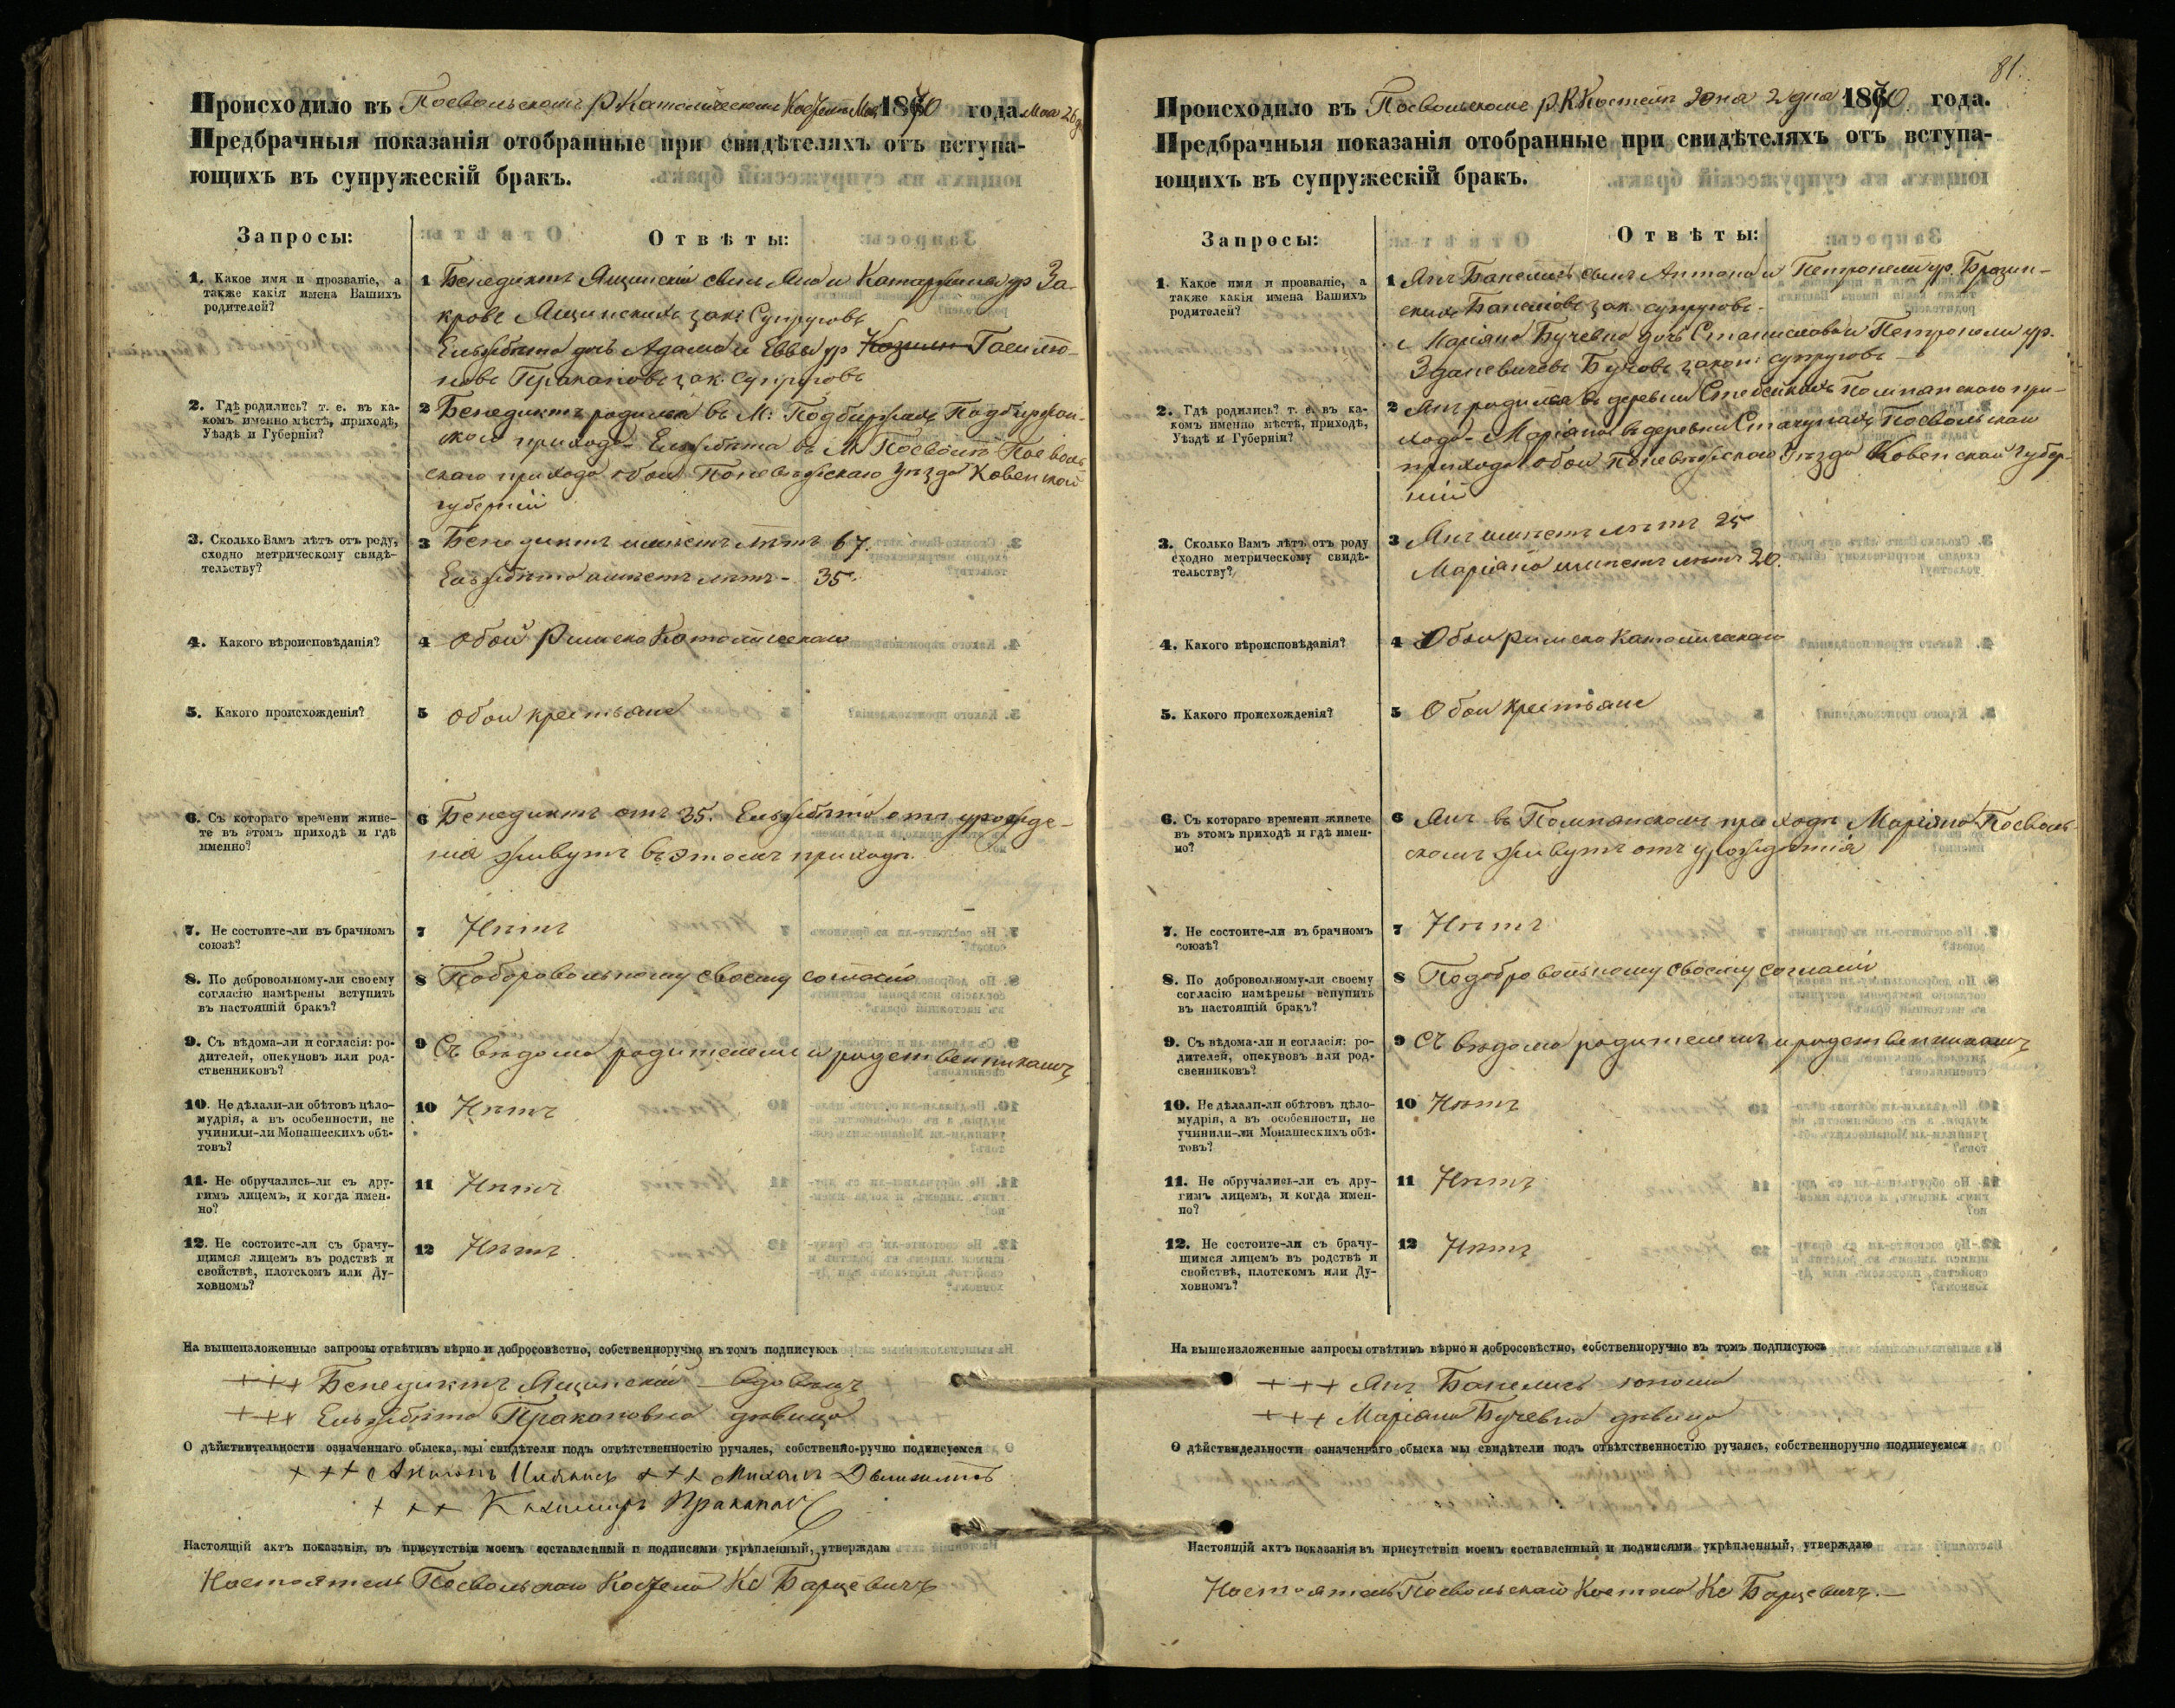 Происходило въ Посвольскомъ Р Католическомъ Костелѣ 1870 года Мая 26
Предбрачныя показанія отобранные при свидѣтеляхъ отъ вступа-
ющихъ въ супружескій бракъ.
Запросы: Отвѣты:
1. Какое имя и прозваніе, а
также какія имена Вашихъ
родителей?
1 Бенедиктъ Ящинскій сынъ Яна и Катаржины ур За-
кровъ Ящинскихъ зак: Супруговъ
Ельжбѣта дочь Адама и Еввы ур
Пракаповъ зак. Супруговъ
2. Гдѣ родились? т. е. въ ка-
комъ именно мѣстѣ, приходѣ,
Уѣздѣ и Губерніи?
2 Бенедиктъ родился въ М: Подбиржахъ Подбиржан-
скаго прихода – Ельжбѣта въ М Посволѣ Посволь-
скаго прихода обои Поневѣжскаго уѣзда Ковенской
губерніи
3. Сколько Вамъ лѣтъ отъ роду,
сходно метрическому свидѣ-
тельству?
3 Бенедиктъ имѣетъ лѣтъ 67.
Ельжбѣта имѣетъ лѣтъ – 35.
4. Какого вѣроисповѣданія?
4 Обои Римско Католическаго
5. Какого происхожденія?
5 Обои крестьяне
6. Съ котораго времени живе-
те въ этомъ приходѣ и гдѣ
именно?
6 Бенедиктъ отъ 35. Ельжбѣта отъ урожде-
нія живутъ въ этомъ приходѣ.
7. Не состоите-ли въ брачномъ
союзѣ?
7 Нѣтъ
8. По добровольному-ли своему
согласію намѣрены вступить
въ настоящій бракъ?
8 По доброволькому своему согласію
9. Съ вѣдома-ли и согласія: ро-
дителей, опекуновъ или род-
ственниковъ?
9 Съ вѣдома родителемъ и родственникамъ
10. Не дѣлали-ли обѣтовъ цѣло-
мудрія, а въ особенности, не
учинили-ли Монашескихъ обѣ-
товъ?
10 Нѣтъ
11. Не обручались-ли съ дру-
гимъ лицемъ, и когда имен-
но?
11 Нѣтъ
12. Не состоите-ли съ брачу-
щимся лицемъ въ родствѣ и
свойствѣ, плотскомъ или Ду-
ховномъ?
12 Нѣтъ
На вышеизложенные запросы отвѣтивъ вѣрно и добросовѣстно, собственноручно въ томъ подписуюсь
+++ Бенедиктъ Ящинскій вдовецъ
+++ Ельжбѣта Пракаповна дѣвица
О дѣйствительности означеннаго обыска, мы свидѣтели подъ отвѣтственностію ручаясь, собственно-ручно подписуемся
+++ Антонъ +++ Михалъ
+++ Казимиръ Пракапас
Настоящій актъ показанія, въ присутствіи моемъ составленный и подписями укрѣпленный, утверждаю
Настоятель Посвольскаго Костела Кс Барцевичъ
81.
Происходило въ Посвольскомъ Р. К. Костелѣ Юня 2 дня 1870. года.
Предбрачныя показанія отобранные при свидѣтеляхъ отъ вступа-
ющихъ въ супружескій бракъ.
Запросы: Отвѣты:
1. Какое имя и прозваніе, а
также какія имена Вашихъ
родителей?
1 Янъ Банелисъ сынъ Антона и Петронели ур. Бразин-
скихъ Банелисовъ зак. супруговъ.
и Маріяна Бучевна дочь Станислава и Петронели ур.
Зданевичовъ Бучовъ закон: супруговъ –
2. Гдѣ родились? т. е. въ ка-
комъ именно мѣстѣ, приходѣ,
Уѣздѣ и Губерніи?
2 Янъ родился въ деревни Помпянскаго при-
хода – Маріяна въ деревни Посвольскаго
прихода обои Поневѣжскаго Уѣзда Ковенской Губер-
ніи
3. Сколько Вамъ лѣтъ отъ роду
сходно метрическому свидѣ-
тельству?
3 Янъ имѣетъ лѣтъ 25
Маріяна имѣетъ лѣтъ 20.
4. Какого вѣроисповѣданія?
4 Обои Римско Католическаго
5. Какого происхожденія?
5 Обои Крестьяне
6. Съ котораго времени живете
въ этомъ приходѣ и гдѣ имен-
но?
6 Янъ въ Помпянскомъ приходѣ Маріяна Посволь-
скомъ живутъ отъ урожденія
7. Не состоите-ли въ брачномъ
союзѣ?
7 Нѣтъ
8. По добровольному-ли своему
согласію намѣрены вступить
въ настоящій бракъ?
8 По добровольному своему согласію
9. Съ вѣдома-ли и согласія: ро-
дителей, опекуновъ или род-
свенниковъ?
9 Съ вѣдома родителемъ и родственникамъ
10. Не дѣлали-ли обѣтовъ цѣло-
мудрія, а въ особенности, не
учинили-ли Монашескихъ обѣ-
товъ?
10 Нѣтъ
11. Не обручались-ли съ дру-
гимъ лицемъ, и когда имен-
но?
11 Нѣтъ
12. Не состоите-ли съ брачу-
щимся лицемъ въ родствѣ и
свойствѣ, плотскомъ или Ду-
ховномъ?
12 Нѣтъ
На вышеизложенные запросы отвѣтивъ вѣрно и добросовѣстно, собственноручно въ томъ подписуюсь
+++ Янъ Банелисъ юноша
+++ Маріяна Бучевна дѣвица
О дѣйствидельности означеннаго обыска мы свидѣтели подъ отвѣтственностію ручаясь, собственноручно подписуемся
Настоящій актъ показанія въ присутствіи моемъ составленный и подписями укрѣпленный, утверждаю
Настоятель Посвольскаго Костела Кс Барцевичъ. –